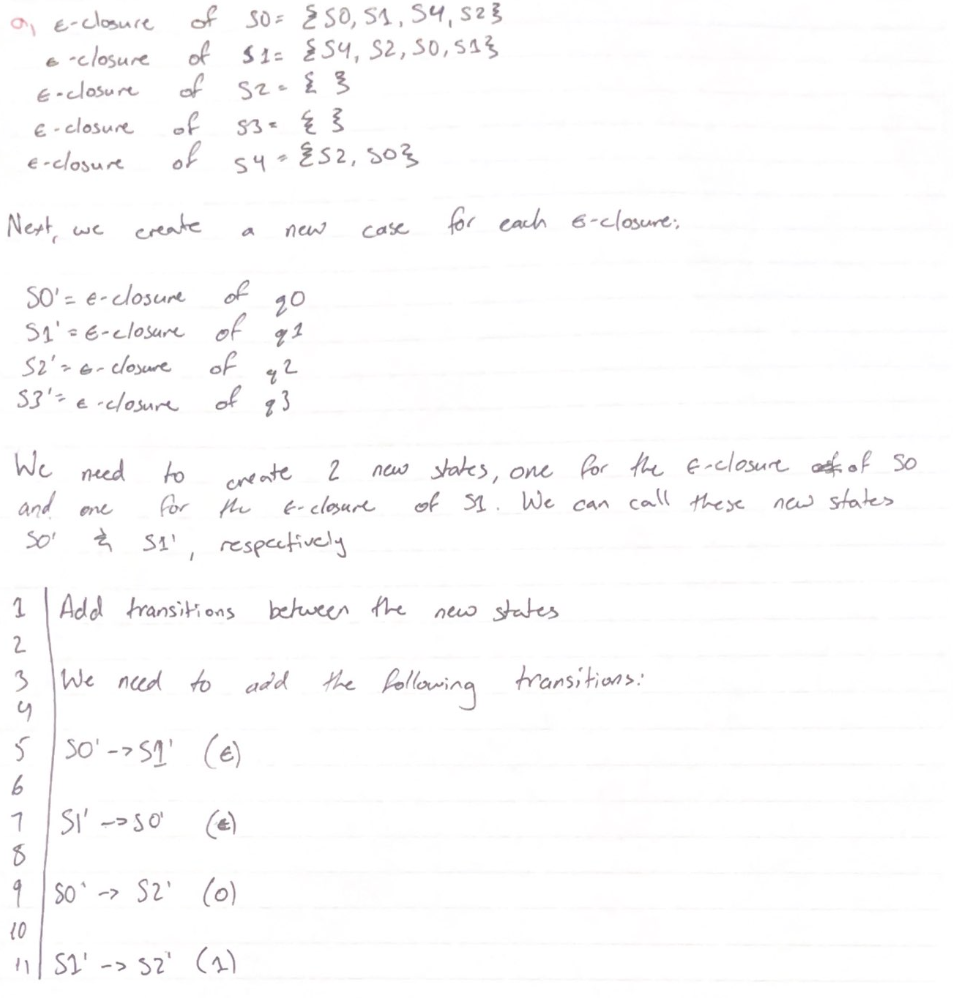 a) ε-closure of S0 = {S0, S1, S4, S2}
ε-closure of S1 = {S4, S2, S0, S1}
ε-closure of S2 = { }
ε-closure of S3 = { }
ε-closure of S4 = {S2, S0}
Next, we create a new case for each ε-closure:
S0' = ε-closure of q0
S1' = ε-closure of q1
S2' = ε-closure of q2
S3' = ε-closure of q3
We need to create 2 new states, one for the ε-closure of S0
and one for the ε-closure of S1. We can call these new states
S0' & S1', respectively
1 Add transitions between the new states
2
3 We need to add the following transitions:
4
5 S0' -> S1' (ε)
6
7 S1' -> S0' (ε)
8
9 S0' -> S2' (0)
10
11 S1' -> S2' (1)